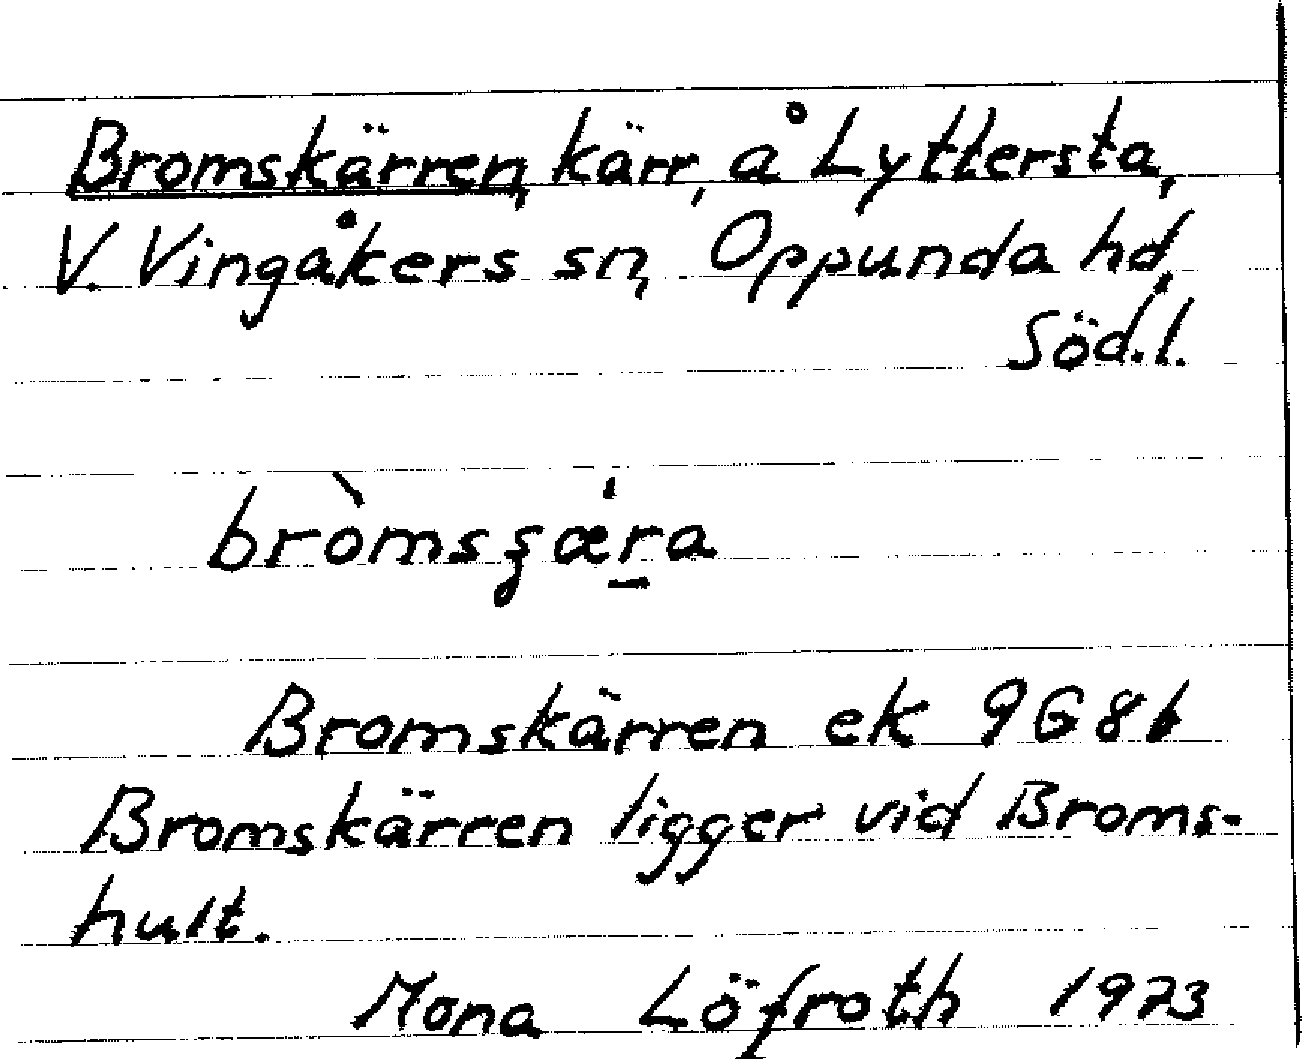 Bromskärren, kärr, å Lyttersta,
V. Vingåkers sn, Oppunda hd,
Söd.l.
bròmsʂæ̍r̠a
Bromskärren ek 9G8b
Bromskärren ligger vid Broms-
hult.
Mona Löfroth 1973